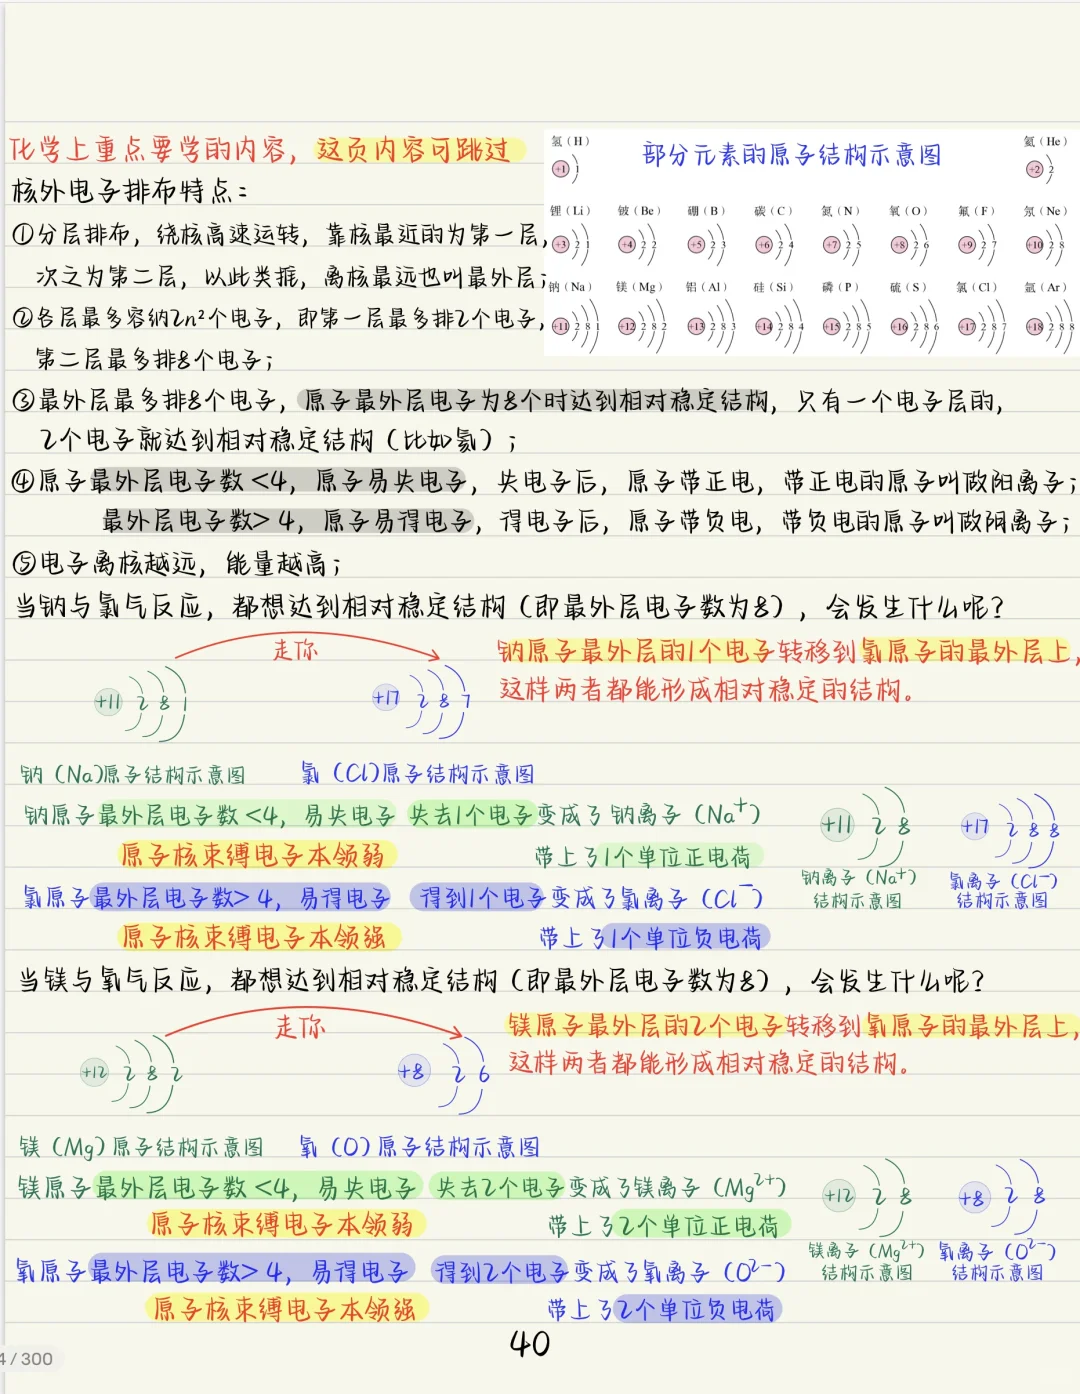 化学上重点要学的内容，这页内容可跳过
核外电子排布特点：
①分层排布，绕核高速运转，靠核最近的为第一层，
次之为第二层，以此类推，离核最远也叫最外层；
②各层最多容纳2n²个电子，即第一层最多排2个电子，
第二层最多排8个电子；
部分元素的原子结构示意图
氢（H） 氦（He）
+1 1 +2 2
锂（Li） 铍（Be） 硼（B） 碳（C） 氮（N） 氧（O） 氟（F） 氖（Ne）
+3 2 1 +4 2 2 +5 2 3 +6 2 4 +7 2 5 +8 2 6 +9 2 7 +10 2 8
钠（Na） 镁（Mg） 铝（Al） 硅（Si） 磷（P） 硫（S） 氯（Cl） 氩（Ar）
+11 2 8 1 +12 2 8 2 +13 2 8 3 +14 2 8 4 +15 2 8 5 +16 2 8 6 +17 2 8 7 +18 2 8 8
③最外层最多排8个电子，原子最外层电子为8个时达到相对稳定结构，只有一个电子层的，
2个电子就达到相对稳定结构（比如氦）；
④原子最外层电子数<4，原子易失电子，失电子后，原子带正电，带正电的原子叫做阳离子；
最外层电子数>4，原子易得电子，得电子后，原子带负电，带负电的原子叫做阴离子；
⑤电子离核越远，能量越高；
当钠与氯气反应，都想达到相对稳定结构（即最外层电子数为8），会发生什么呢？
走你
+11 2 8 1 +17 2 8 7
钠原子最外层的1个电子转移到氯原子的最外层上，
这样两者都能形成相对稳定的结构。
钠（Na)原子结构示意图 氯（Cl)原子结构示意图
钠原子最外层电子数<4，易失电子 失去1个电子变成了钠离子（Na⁺）
原子核束缚电子本领弱 带上了1个单位正电荷
氯原子最外层电子数>4，易得电子 得到1个电子变成了氯离子（Cl⁻）
原子核束缚电子本领强 带上了1个单位负电荷
+11 2 8 +17 2 8 8
钠离子（Na⁺） 氯离子（Cl⁻）
结构示意图 结构示意图
当镁与氧气反应，都想达到相对稳定结构（即最外层电子数为8），会发生什么呢？
走你
+12 2 8 2 +8 2 6
镁原子最外层的2个电子转移到氧原子的最外层上，
这样两者都能形成相对稳定的结构。
镁（Mg）原子结构示意图 氧（O）原子结构示意图
镁原子最外层电子数<4，易失电子 失去2个电子变成了镁离子（Mg²⁺）
原子核束缚电子本领弱 带上了2个单位正电荷
氧原子最外层电子数>4，易得电子 得到2个电子变成了氧离子（O²⁻）
原子核束缚电子本领强 带上了2个单位负电荷
+12 2 8 +8 2 8
镁离子（Mg²⁺） 氧离子（O²⁻）
结构示意图 结构示意图
40
4 / 300